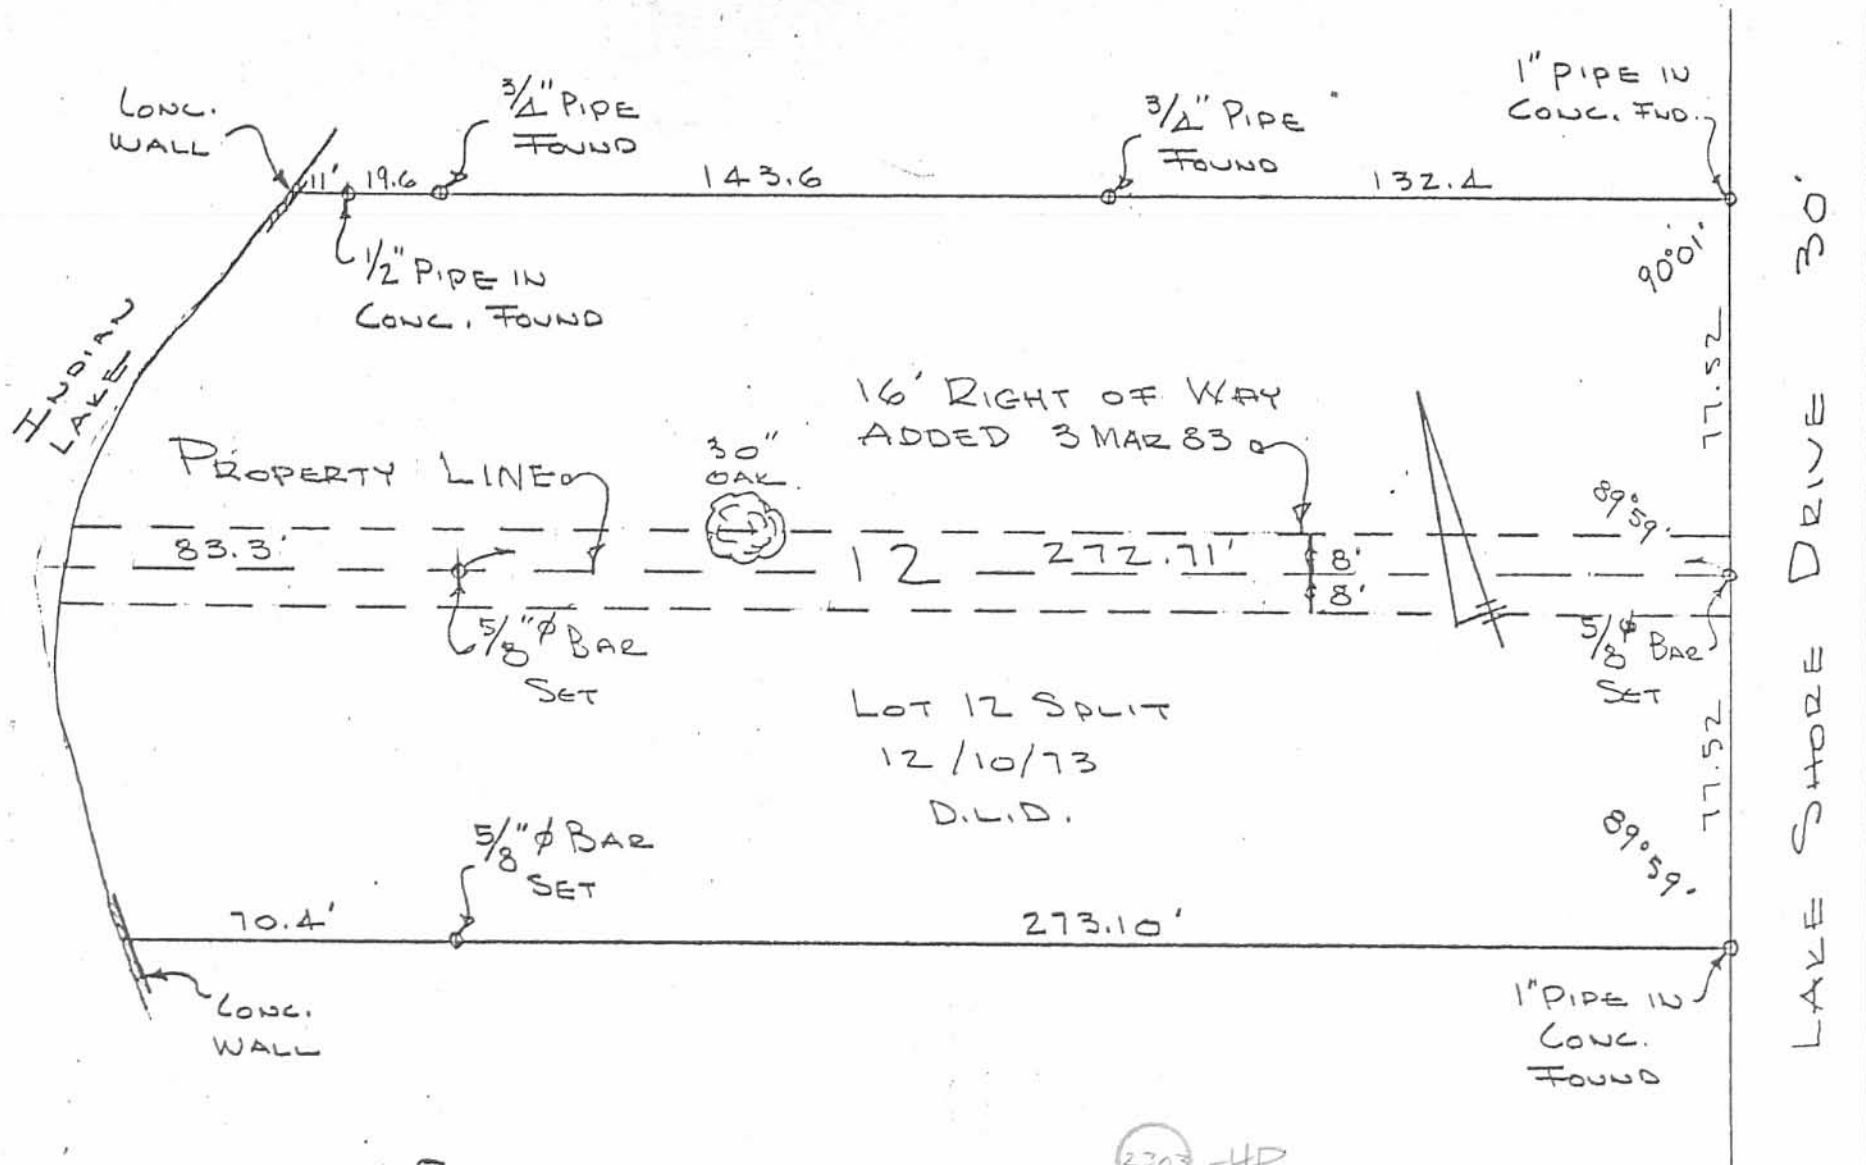 CONC.
WALL
3/4" PIPE
FOUND
3/4" PIPE
FOUND
1" PIPE IN
CONC. FND.
11'
19.6
143.6
132.4
1/2" PIPE IN
CONC. FOUND
90°01'
INDIAN
LAKE
77.52
16' RIGHT OF WAY
ADDED 3 MAR 83
PROPERTY LINE
30"
OAK
89°59'
83.3'
12
272.71'
8'
8'
5/8" ϕ BAR
SET
5/8" ϕ BAR
SET
LOT 12 SPLIT
12/10/73
D.L.D.
77.52
89°59'
5/8" ϕ BAR
SET
70.4'
273.10'
CONC.
WALL
1" PIPE IN
CONC.
FOUND
LAKE SHORE DRIVE 30'